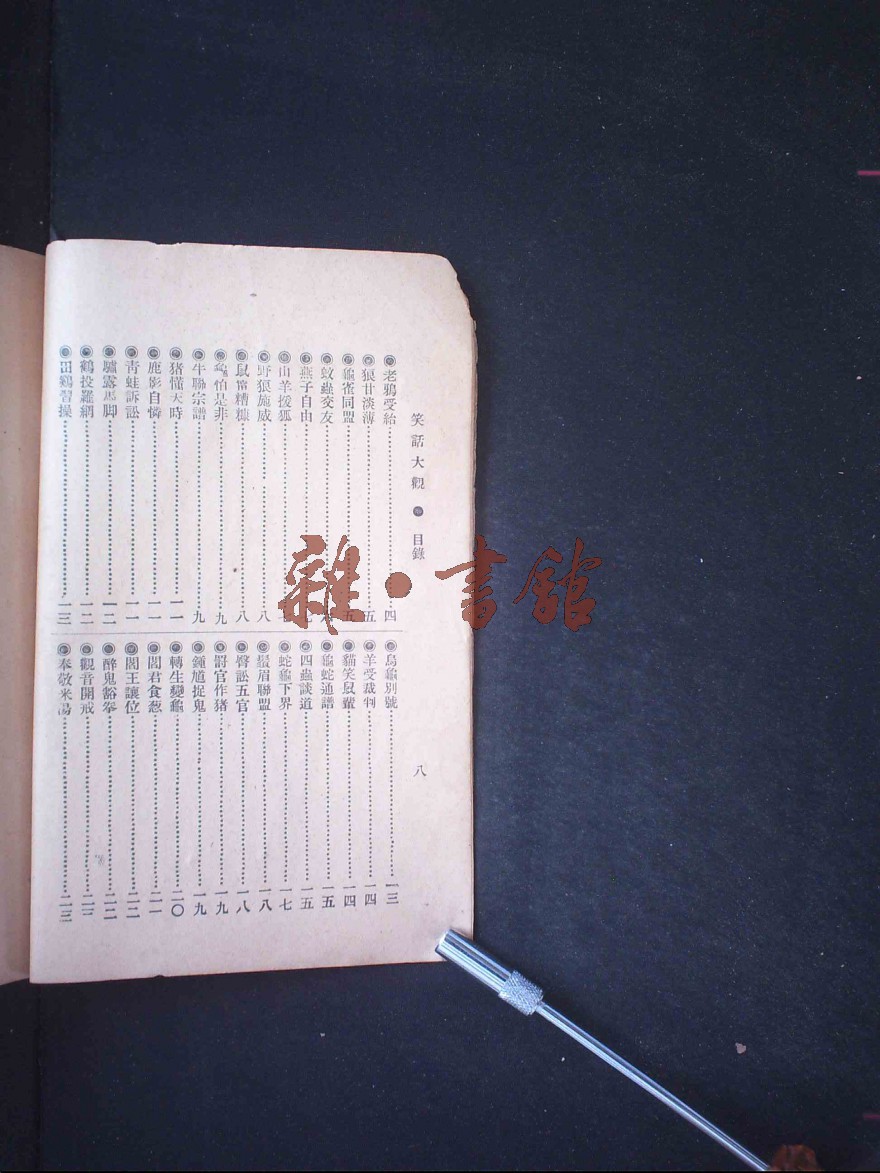 笑話大觀 ● 目錄
八
老鴉受紿……四
狼甘淡薄……五
龜雀同盟……五
蚊蟲交友……六
燕子自由……
山羊援狐……
野狼施威……八
鼠富糟糠……八
龜怕是非……九
牛聯宗譜……九
猪懂天時……一一
鹿影自憐……一一
青蛙訴訟……一一
驢露馬脚……一二
鶴投羅網……一二
田鷄習操……一三
烏龜別號……一三
羊受裁判……一四
貓笑鼠輩……一四
龜蛇通譜……一五
四蟲談道……一五
蛇龜下界……一七
鬚眉聯盟……一八
臀訟五官……一八
罰官作猪……一九
鍾馗捉鬼……一九
轉生變龜……二〇
閻君食葱……二一
閻王讓位……二二
醉鬼豁拳……二二
觀音開戒……二三
奉敬米湯……二三
雜·書館